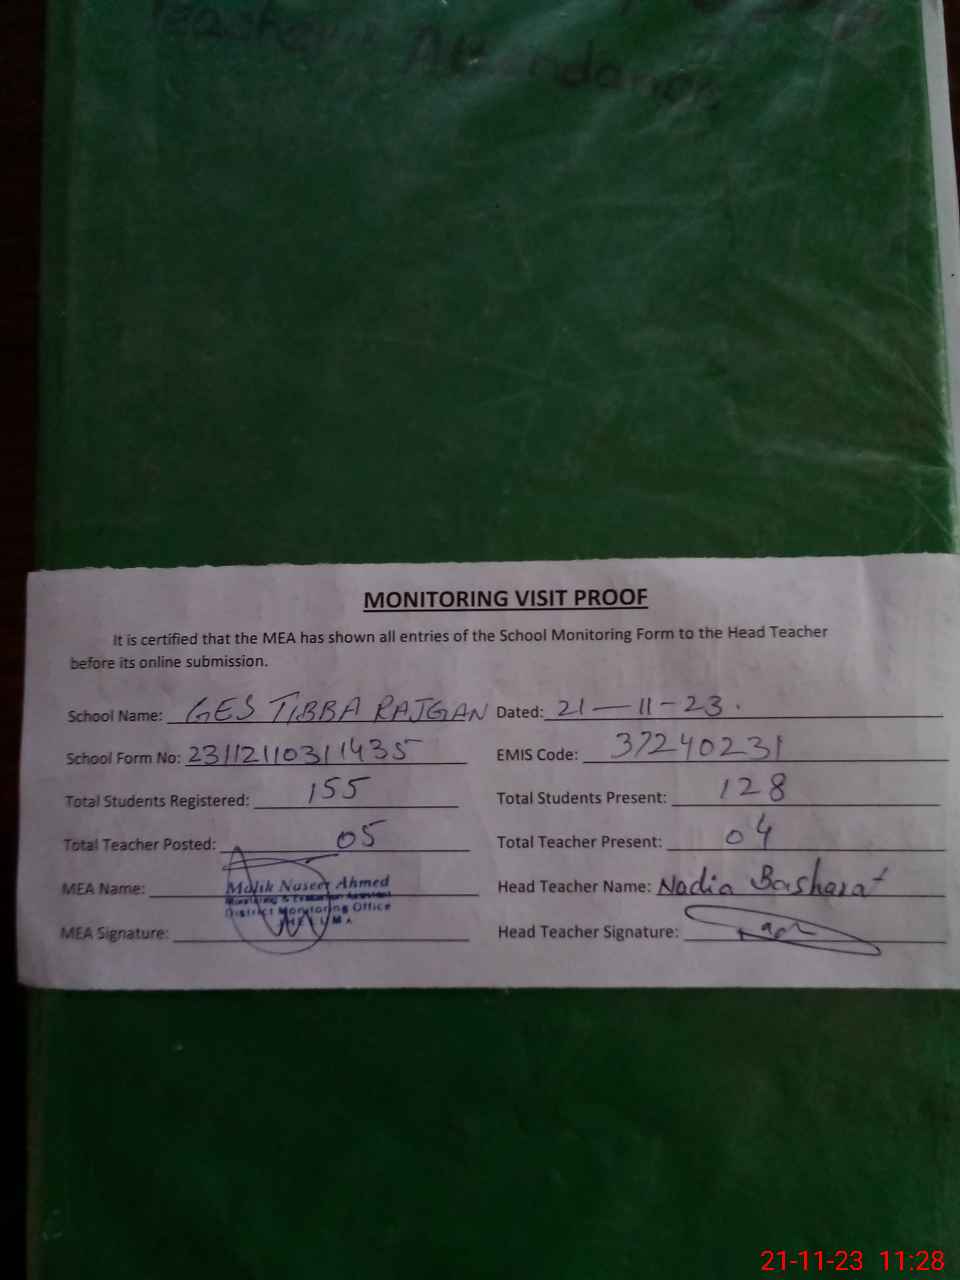 Teacher's Attendance
MONITORING VISIT PROOF
It is certified that the MEA has shown all entries of the School Monitoring Form to the Head Teacher
before its online submission.
School Name: GES TIBBA RAJGAN Dated: 21-11-23.
School Form No: 23112110311435 EMIS Code: 37240231
Total Students Registered: 155 Total Students Present: 128
Total Teacher Posted: 05 Total Teacher Present: 04
MEA Name: Malik Naseer Ahmed Head Teacher Name: Nadia Basharat
Monitoring & Evaluation Assistant
District Monitoring Office
JHELUM
MEA Signature: Head Teacher Signature:
21-11-23 11:28